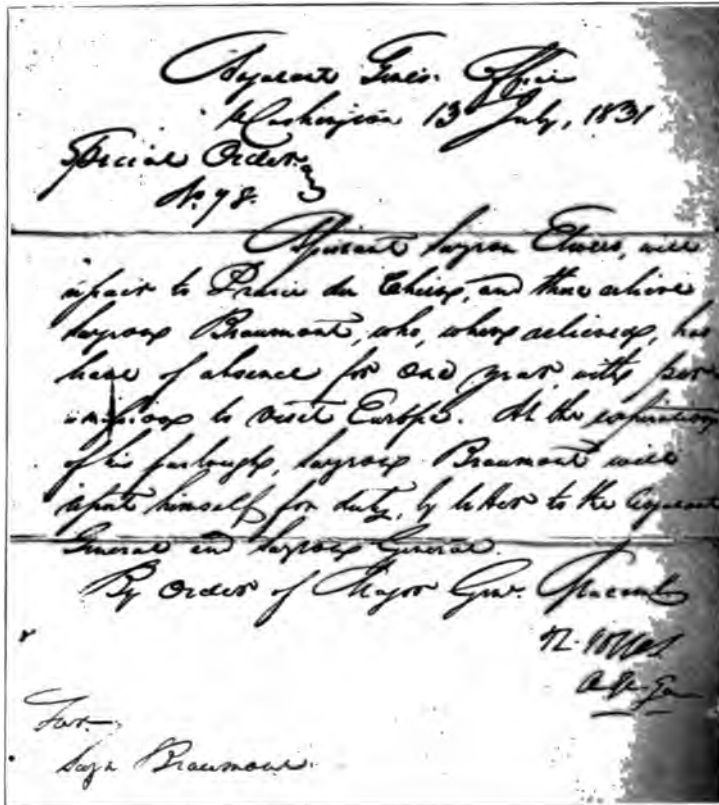 Adjutant Genls. Office
Washington 13 July, 1831
Special Order
No 78.
Assistant Surgeon Elwees, will
repair to Prairie du Chien, and there relieve
Surgeon Beaumont, who, when relieved, has
leave of absence for one year, with per
mission to visit Europe. At the expiration
of his furlough, Surgeon Beaumont will
report himself for duty, by letter to the Adjutant
General and Surgeon General.
By Order of Major Genl. Macomb
R. Jones
Adj. Gen
For
Surgn Beaumont.